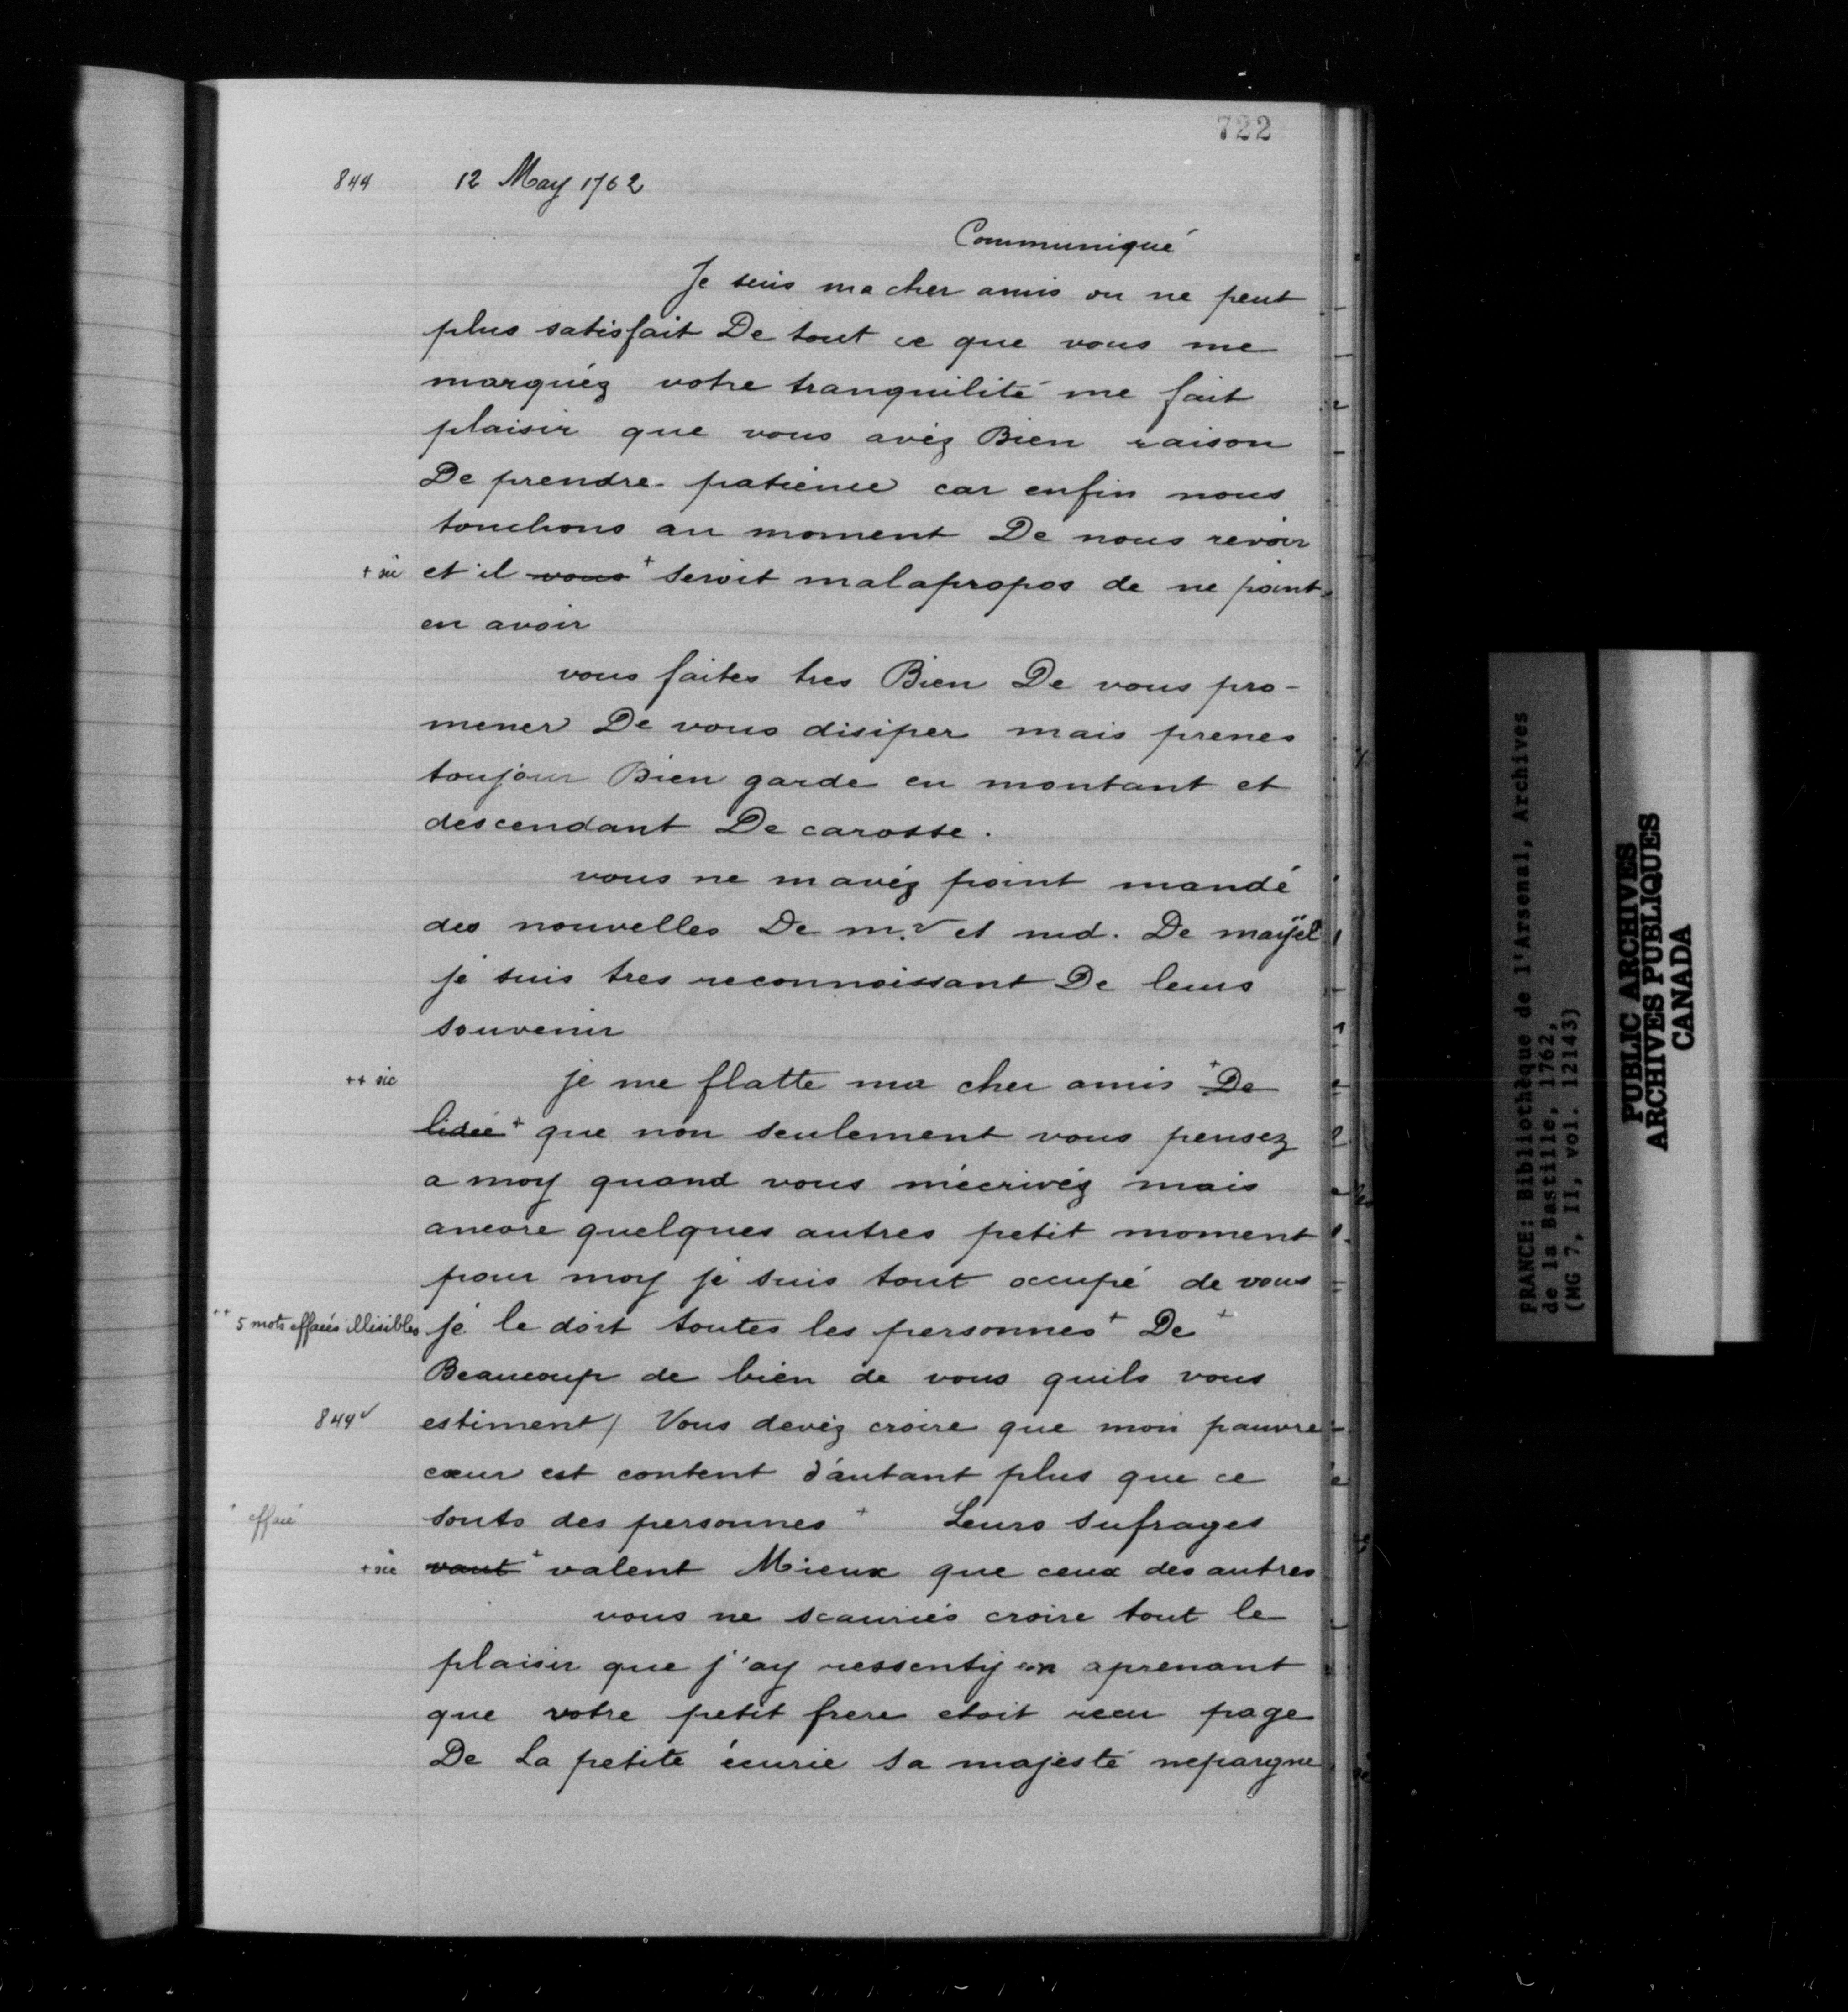 722
844 12 May 1762
Communiqué
Je suis ma cher amis on ne peut
plus satisfait De tout ce que vous me
marquéz votre tranquilité me fait
plaisir que vous avéz Bien raison
De prendre patience car enfin nous
touchons au moment De nous revoir
+ sic et il vous + seroit malapropos de ne point
en avoir
vous faites tres Bien De vous pro-
mener De vous disiper mais prenes
toujour Bien garde en montant et
descendant De carosse.
vous ne mavéz point mandé
des nouvelles De m.r et md. De mayèl
je suis tres reconnoissant De leurs
souvenir
++ sic je me flatte ma cher amis + De
lidée + que non seulement vous pensez
a moy quand vous mécrivéz mais
ancore quelques autres petit moment
pour moy je suis tout occupé de vous
++ 5 mots effacés illisibles je le doit toutes les personnes + De +
Beaucoup de bien de vous quils vous
844v estiment / Vous devéz croire que mon pauvre
cœur est content d'autant plus que ce
+ effacé sonts des personnes + Leurs sufrages
+ sic vaut + valent Mieux que ceux des autres
vous ne scauriés croire tout le
plaisir que j'ay ressentÿ en aprenant
que votre petit frere etoit recu page
De La petite écurie sa majesté nepargne
FRANCE: Bibliothèque de l'Arsenal, Archives
de la Bastille, 1762,
(MG 7, II, vol. 12143)
PUBLIC ARCHIVES
ARCHIVES PUBLIQUES
CANADA